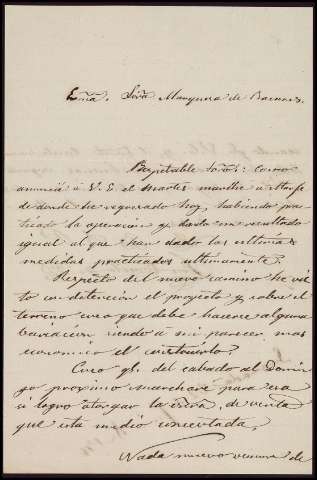 Exma. Sra. Marquesa de
Respetable Señora: Como
anuncié a V. E. el martes marché a
de donde he regresado hoy, habiendo prac-
ticado la operacion qe. ha dado un resultado
igual al que han dado las ultimas
medidas practicadas ultimamente.
Respecto del nuevo camino he vis-
to con detencion el proyecto y sobre el
terreno creo que debe hacerse alguna
variacion siendo a mi parecer mas
economico el construirlo.
Creo qe. del sabado al Domin-
go proximo marchare para esa
si logro otorgar la escra. de venta
que esta medio concertada.
Nada nuevo de